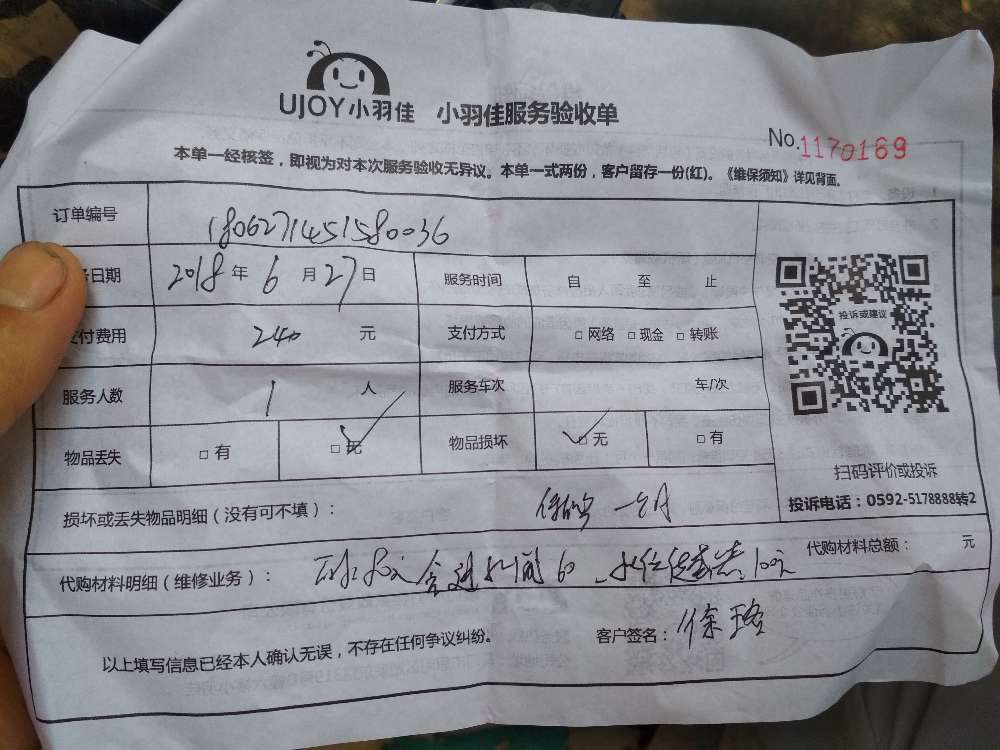 UJOY小羽佳 小羽佳服务验收单
No.1170169
本单一经核签，即视为对本次服务验收无异议。本单一式两份，客户留存一份(红)。《维保须知》详见背面。
订单编号 180627145158036
务日期 2018 年 6 月 27 日 服务时间 自 至 止
支付费用 240 元 支付方式 □ 网络 □ 现金 □ 转账
投诉或建议
服务人数 1 人 服务车次 车/次
物品丢失 □ 有 □ 无 物品损坏 □ 无 □ 有
扫码评价或投诉
投诉电话：0592-5178888转2
损坏或丢失物品明细（没有可不填）： 一个月
代购材料明细（维修业务）： 60
代购材料总额： 元
以上填写信息已经本人确认无误，不存在任何争议纠纷。 客户签名： 徐